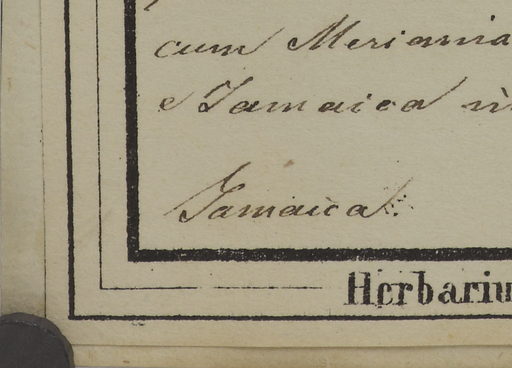 cum Meriania
e Jamaica
Jamaica.
Herbariu